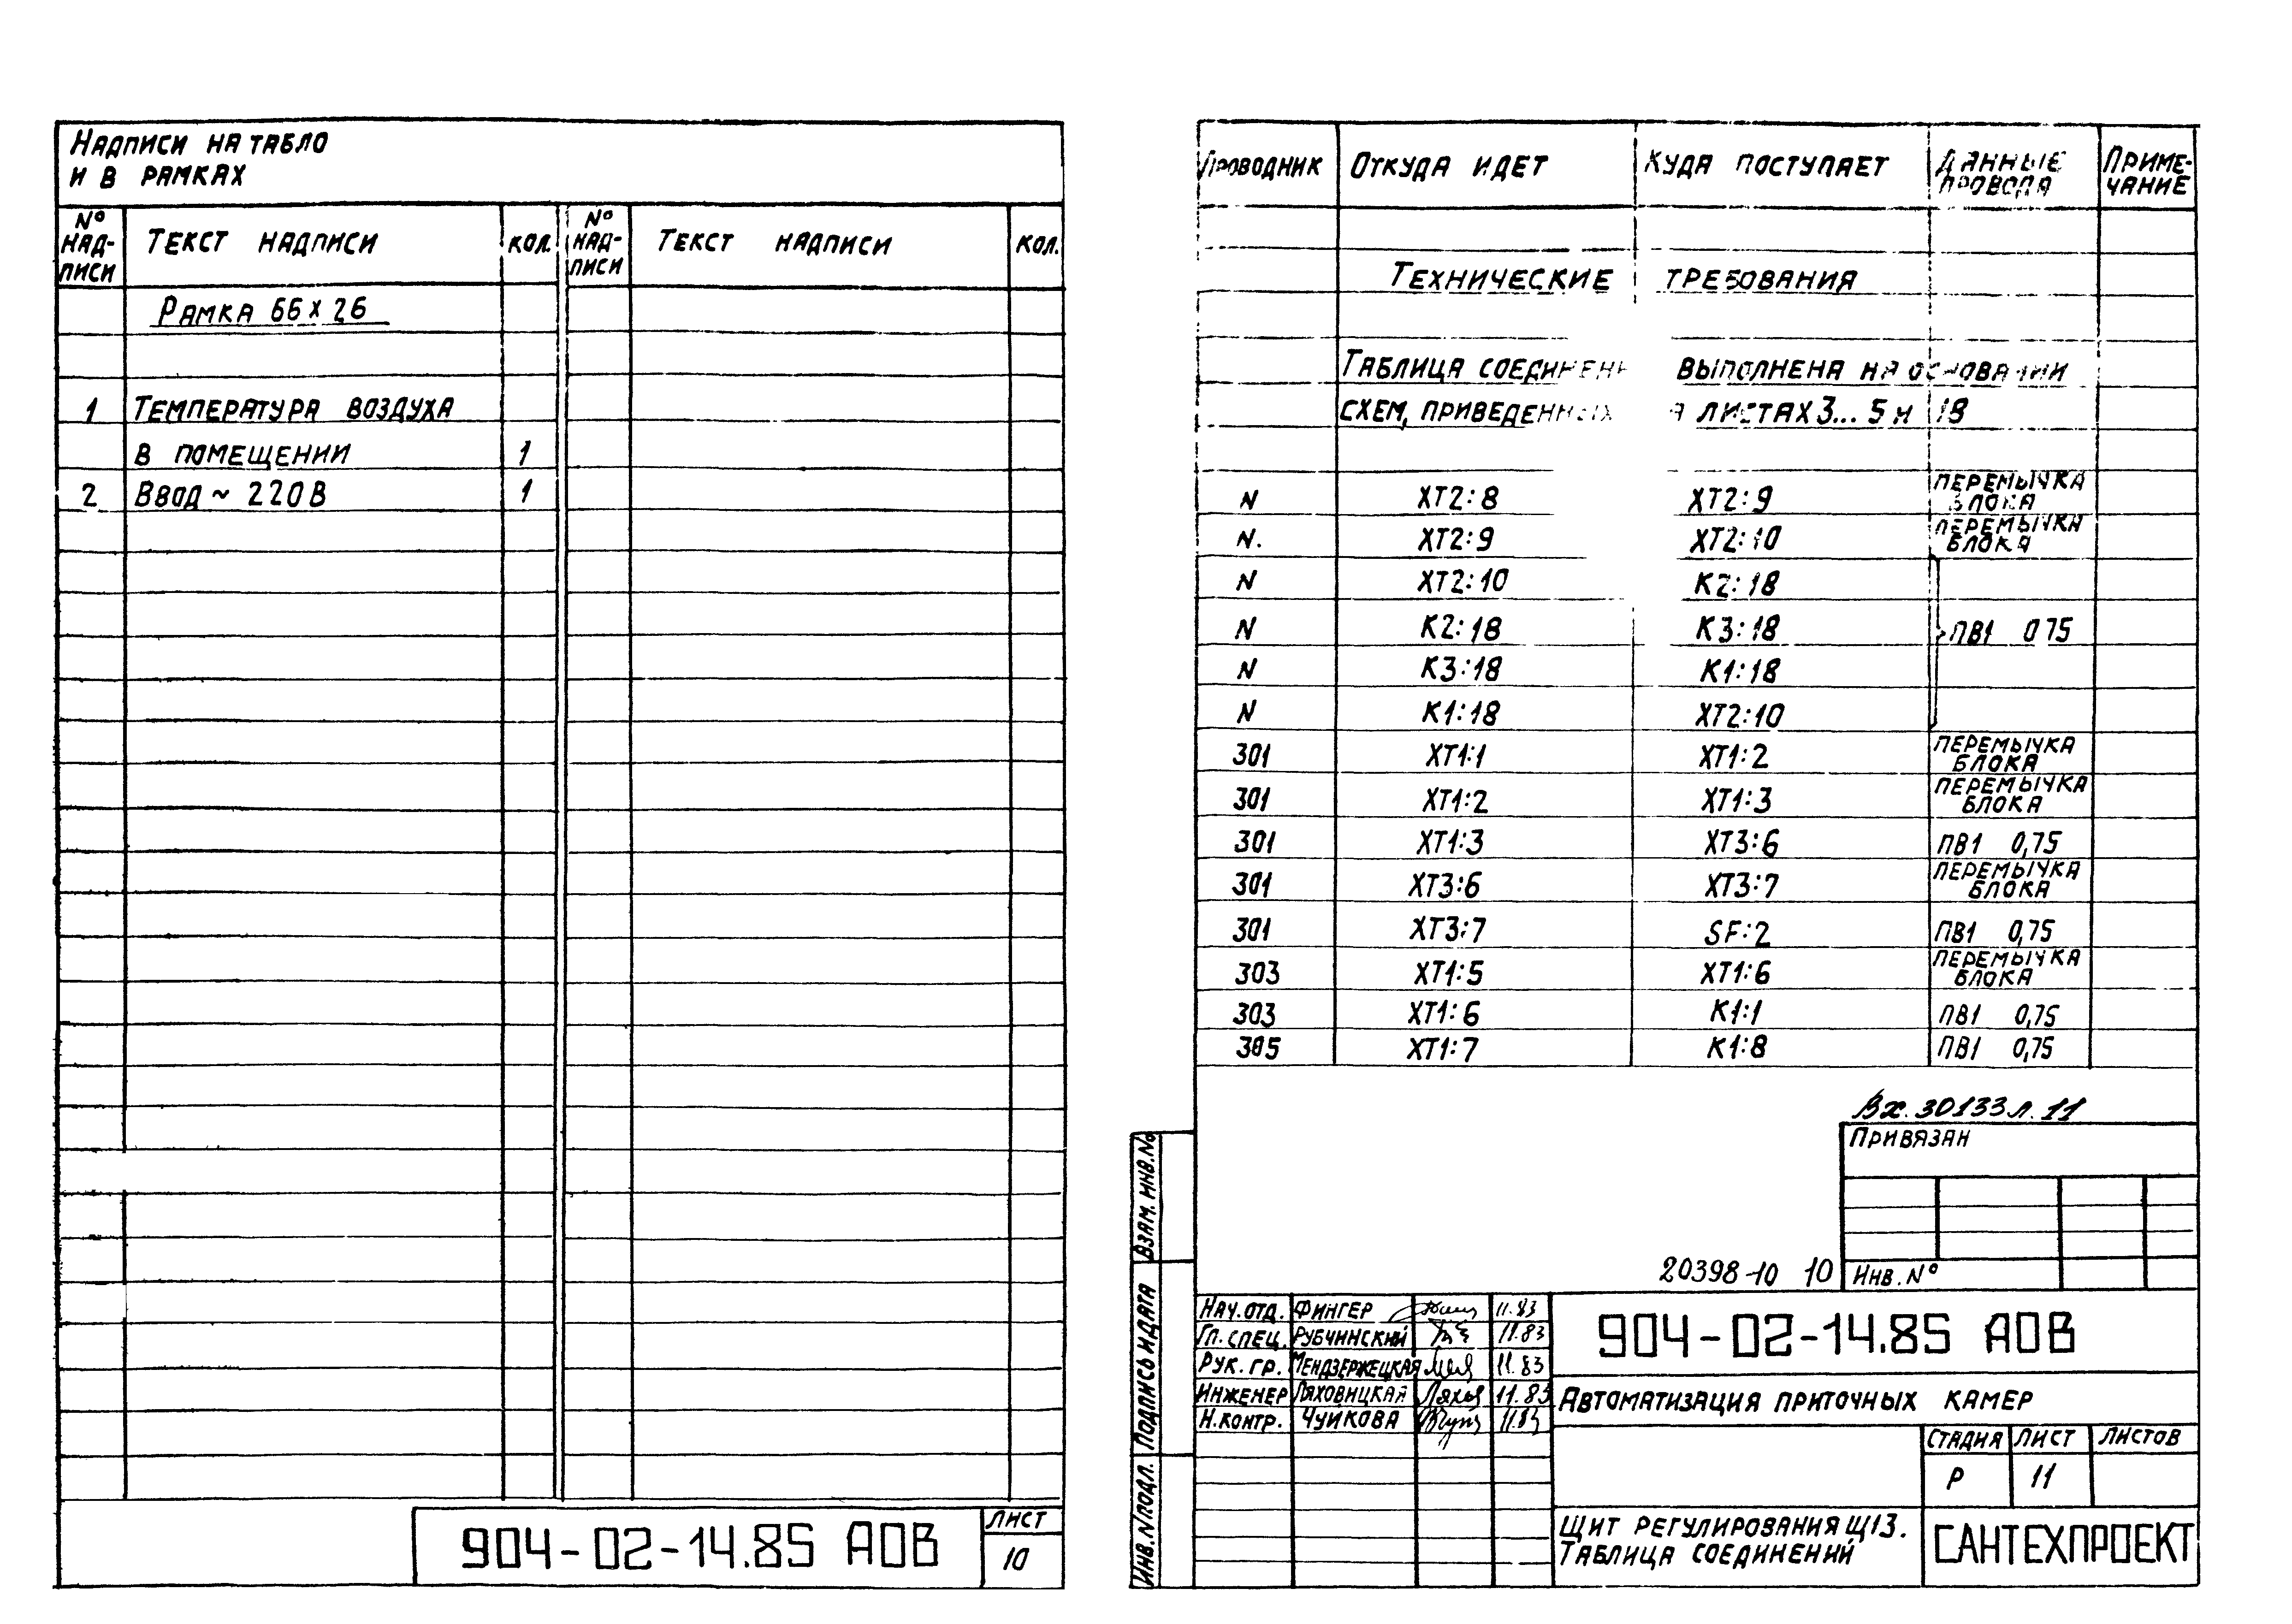 Надписи на табло
и в рамках
№ надписи Текст надписи кол. № надписи Текст надписи кол.
Рамка 66×26
1 Температура воздуха
в помещении 1
2 Ввод ~ 220 В 1
904-02-14.85 АОВ
лист
10
Проводник Откуда идет Куда поступает Данные провода Примечание
Технические требования
Таблица соединен выполнена на основании
схем, приведенных листах 3... 5 и 18
N XT2:8 XT2:9 перемычка блока
N. XT2:9 XT2:10 перемычка блока
N XT2:10 K2:18
N K2:18 K3:18 ПВ1 0 75
N K3:18 K1:18
N K1:18 XT2:10
301 XT1:1 XT1:2 перемычка блока
301 XT1:2 XT1:3 перемычка блока
301 XT1:3 XT3:6 ПВ1 0,75
301 XT3:6 XT3:7 перемычка блока
301 XT3:7 SF:2 ПВ1 0,75
303 XT1:5 XT1:6 перемычка блока
303 XT1:6 K1:1 ПВ1 0,75
305 XT1:7 K1:8 ПВ1 0,75
Вх. 30133 л. 11
Привязан
20398-10 10
Инв. №
Взам. инв. №
Подпись и дата
Инв. № подл.
Нач. отд. Фингер 11.83
Гл. спец. Рубчинский 11.83
Рук. гр. Мендзержецкая 11.83
Инженер Ляховицкая 11.83
Н. контр. Чуйкова 11.83
904-02-14.85 АОВ
Автоматизация приточных камер
стадия лист листов
Р 11
Щит регулирования Щ13.
Таблица соединений
САНТЕХПРОЕКТ